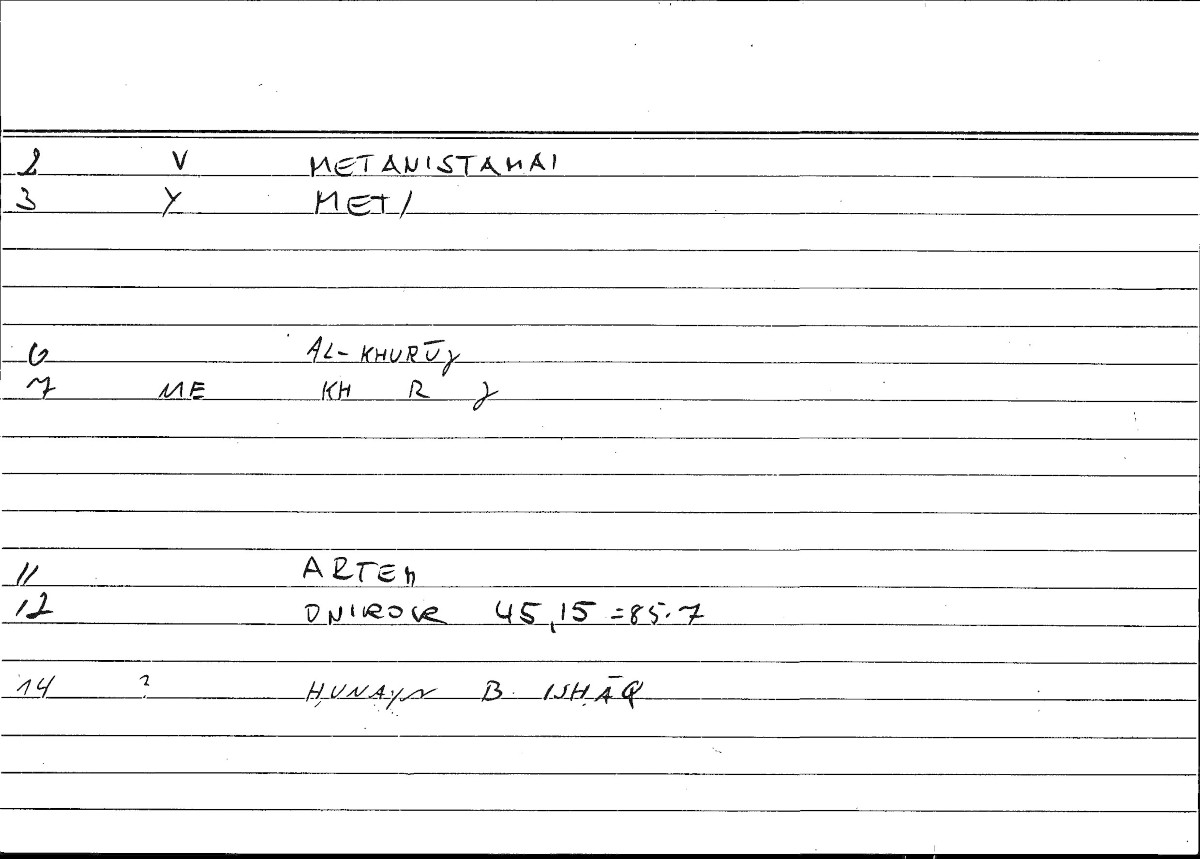 2 V METANISTAMAI
3 Y MET/
6 AL-KHURŪJ
7 ME KH R J
11 ARTEM
12 ONIROCR 45,15 =85.7
14 ? ḤUNAYN B ISḤĀQ